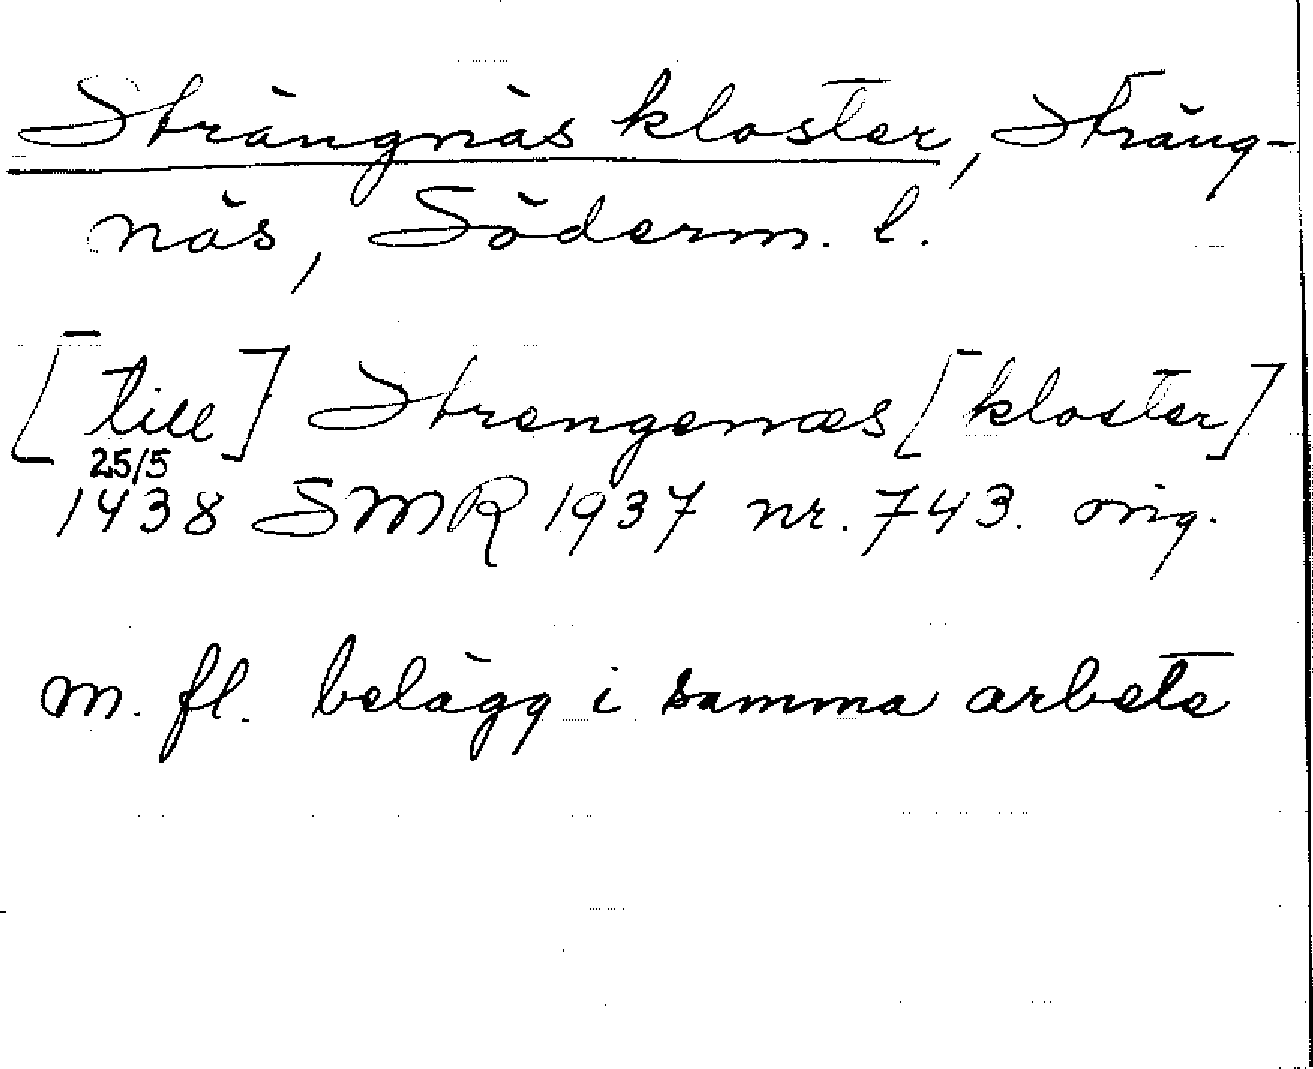 Strängnäs kloster, Sträng-
näs, Söderm. l.
[till] Strengenæs [kloster]
25/5
1438 SMR 1937 nr. 743. orig.
m. fl. belägg i samma arbete